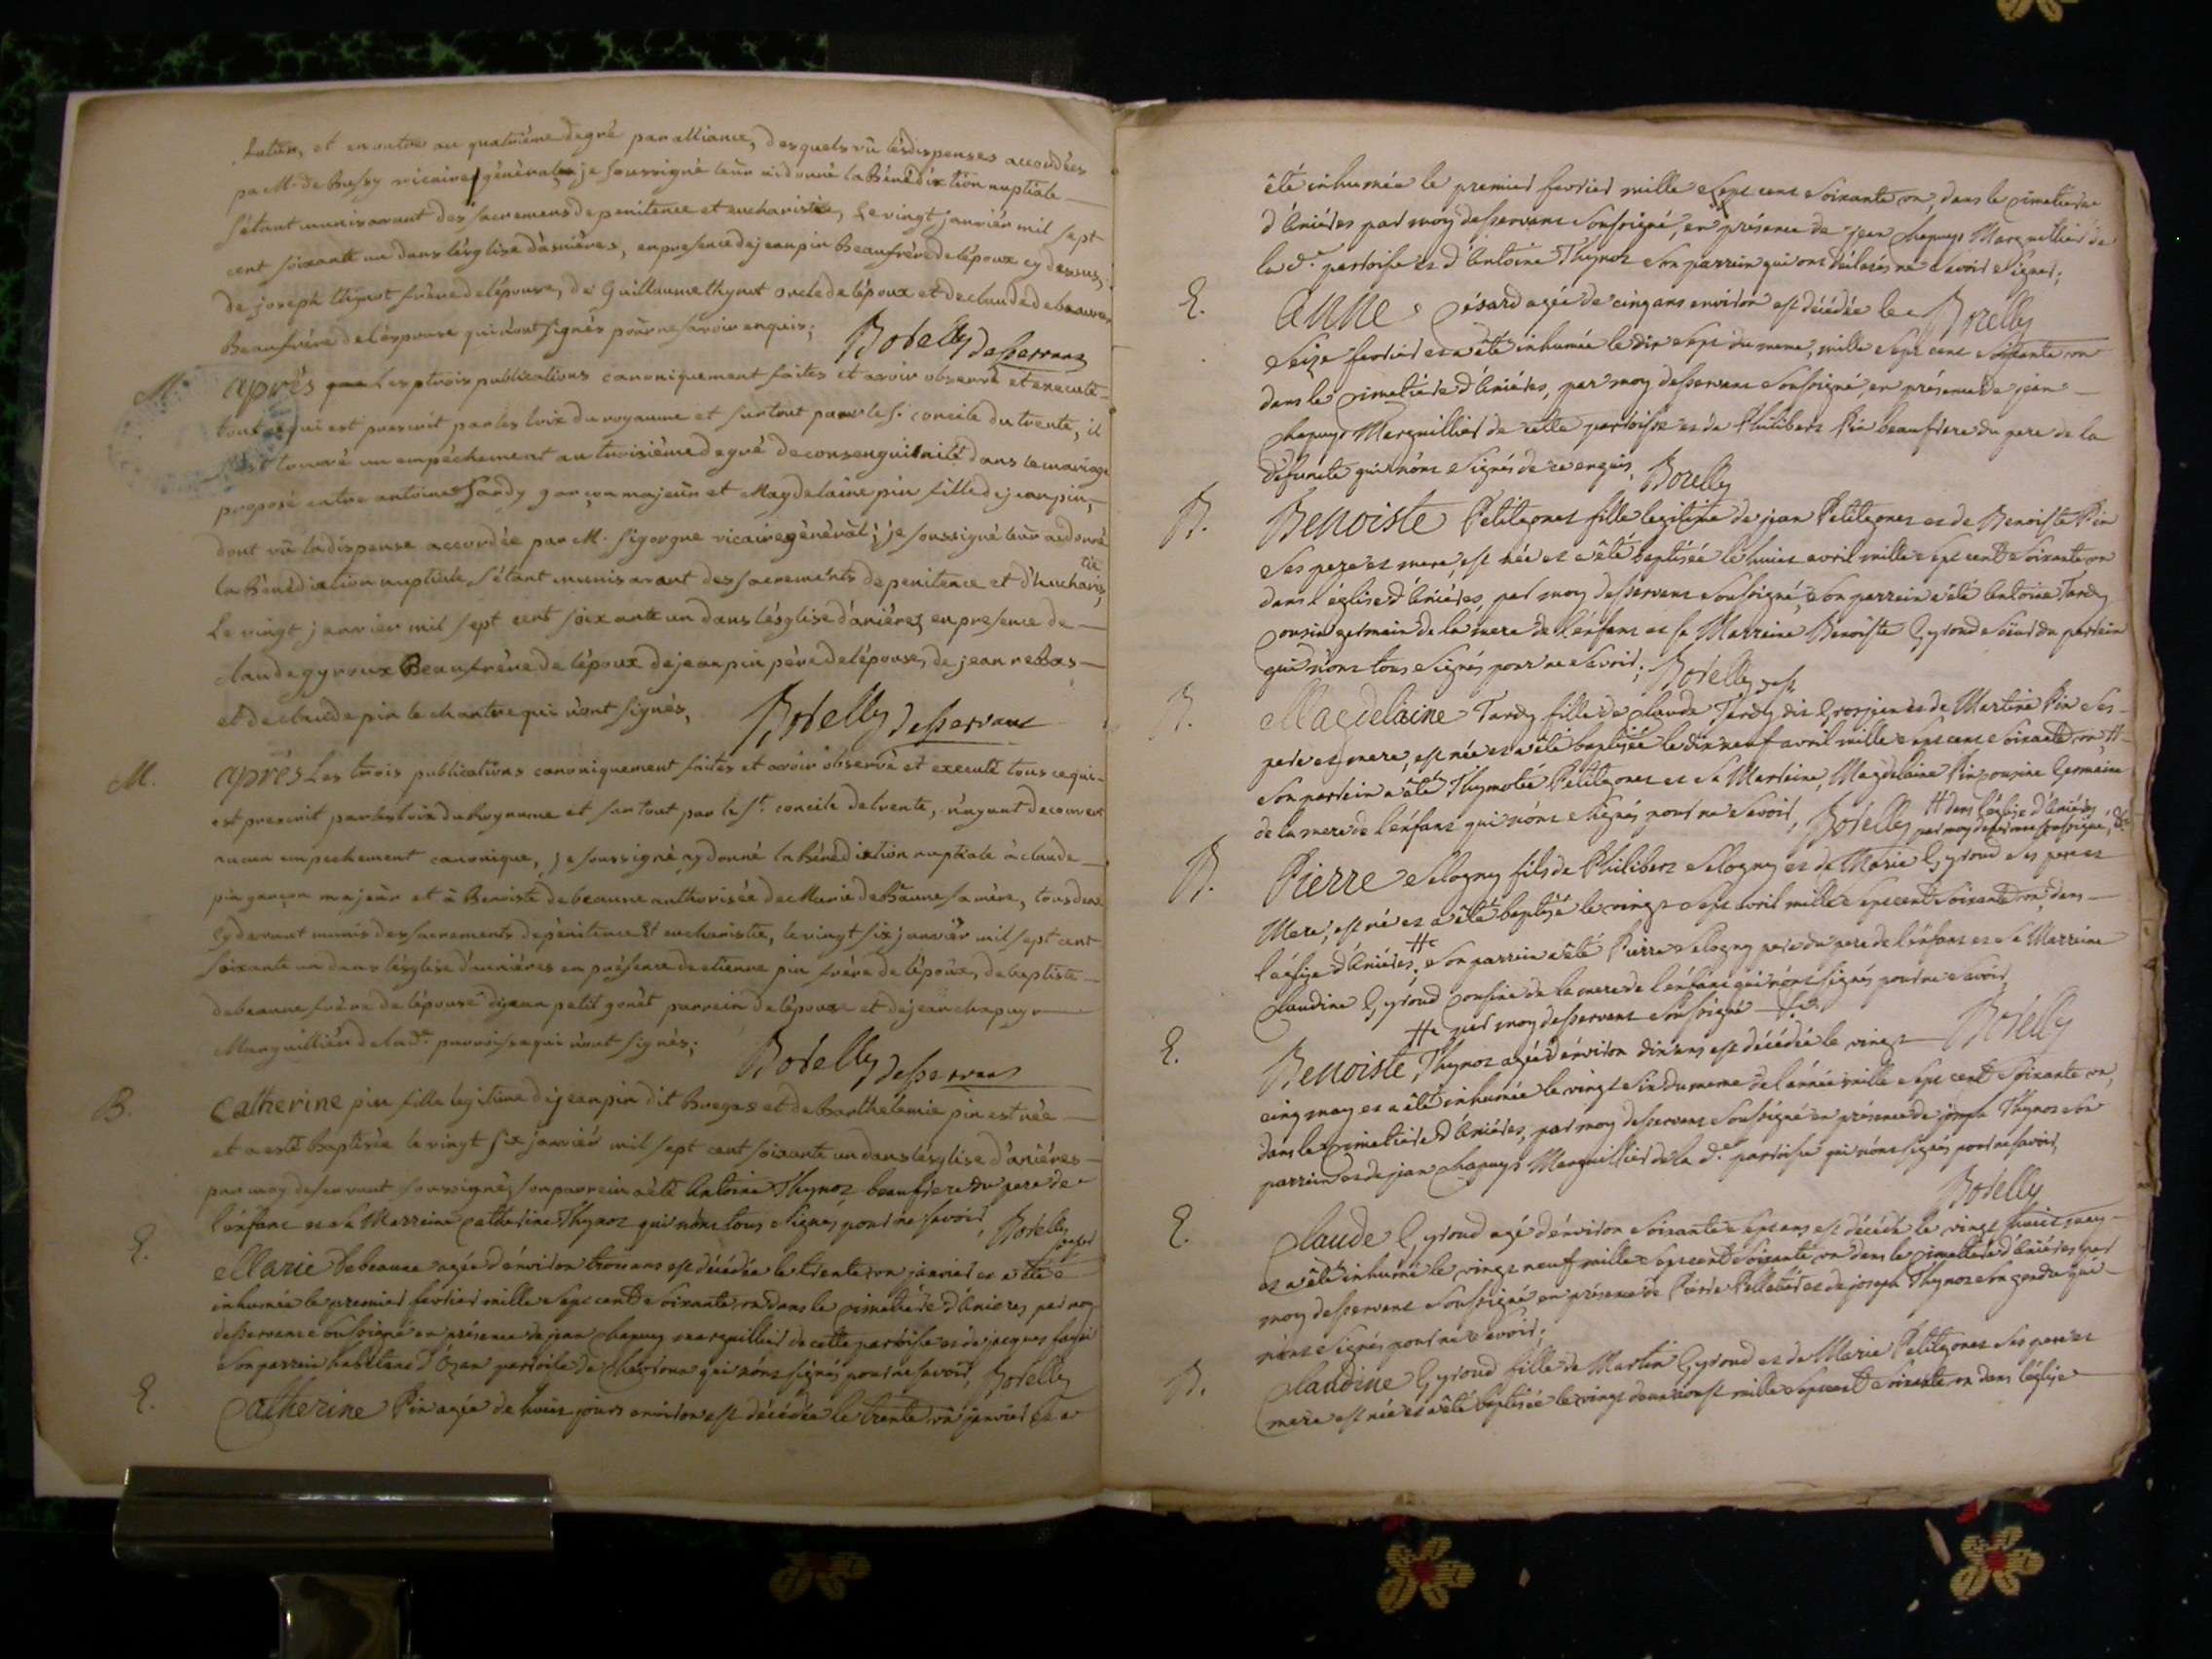 et en outre au quatriême degré par alliance, desquels vû les dispenses accordées
par M. de Bussy vicaire général je soussigné leur ai donné la bénédiction nuptiale
s'étant munis avant des sacremens de penitence et eucharistie, le vingt janviér mil sept
cent soixante un dans l'église d'asniéres, en presence de jean pin beaufrére de l'époux cy dessus,
de joseph thynot frère de l'épouse, de Guillaume thynot oncle de l'époux et de claude debeaune
Beaufrére de l'épouse qui n'ont signés pour ne savoir enquis;
Borelly desservant
M. après les trois publications canoniquement faites et avoir observé et executé
tout ce qui est prescrit par les loix du royaume et surtout par le s.t concile du trente, il
s'est trouvé un empêchement au troisiéme degré de consenguinité dans le mariage
proposé entre antoine tardy garçon majeur et Magdelaine pin fille de jean pin,
dont vû la dispense accordée par M. sigorgne vicaire général; je soussigné leur ai donné
la bénédiction nuptiale, s'étant munis avant des sacrements de penitence et d'eucharistie
Le vingt janvier mil sept cent soixante un dans l'église d'aniéres en presence de
claude gyroux Beaufrére de l'époux de jean pin pére de l'épouse, de jean rebos
et de claude pin le chantre qui n'ont signés,
Borelly desservant
M. après Les trois publications canoniquement faites et avoir observé et executé tous ce qui
est prescrit par les loix du Royaume et sur tout par le s.t concile de trente, n'ayant decouvert
aucun empechement canonique, je soussigné ay donné la bénédiction nuptiale à claude
pin garçon majeur et à Benoiste debeaune authorisée de Marie deBaune sa mére, tous deux
cy devant munis des sacrements de penitence et eucharistie, le vingt six janviér mil sept cent
soixante un dans l'église d'asniéres en présence de etienne pin frére de l'époux, de baptiste
debeaune frère de l'épouse de jean petit gonêt parrein de l'épouse et de jean chapuy
Marguilliér de la d.te paroisse qui n'ont signés;
Borelly desservant
B. Catherine pin fille légitime de jean pin dit Buegas et de barthelemie pin est née
et a esté baptisée le vingt six janviér mil sept cent soixante un dans l'église d'aniéres
par moy deservant soussigné, son parrein a été Antoine Thynot beaufrere du pere de
l'énfant et sa Marreine catherine Thynot qui n'ont tous signés pour ne savoir, Borelly
E. Marie Debeaune agée d'énviron trois ans est décédée le trente un janvier et a été
inhumée le premier fevrier mille sept cent soixante un dans le cimetiére d'aniéres par moy
desservant soussigné en présence de jean chapuy marguillier de cette paroisse et de jacques
son parrein habitant d'Ozan paroisse de qui n'ont signés pour ne savoir, Borelly
E. Catherine Pin agée de huit jours environ est décédée le trente un janvier et a
été inhumée le premier fevrier mille sept cent soixante un, dans le cimetiere
d'aniéres par moy desservant soussigné, en présence de jean chapuys Marguillier de
la d.te paroisse et d'antoine Thynot son parrein qui ont déclarés ne savoir signer;
Borelly
E. Anne Césard agée de cinq ans environ est décédée le
seize fevrier et a été inhumée le dix sept du meme, mille sept cent soixante un
dans le cimetiére d'aniéres, par moy desservant soussigné, en présence de jean
chapuys Marguillier de cette paroisse et de Philibert Pin beaufrere du pere de la
défuncte qui n'ont signés de ce enquis, Borelly
B. Benoiste Petitgonet fille legitime de jean Petitgonet et de Benoiste Pin
ses pere et mere, est née et a été baptisée le huit avril mille sept cent soixante un
dans l'église d'aniéres, par moy desservant soussigné, son parrein a été Antoine Tardy
cousin germain de la mere de l'énfant et sa Marreine Benoiste Gyroud soeur du parrein
qui n'ont tous signés pour ne savoir; Borelly
B. Magdelaine Tardy fille de claude Tardy dit Grosjean et de Martine Pin ses
pere et mere, est née et a été baptisée le dix neuf avril mille sept cent soixante un #
son parrein a été Thymotée Petitgonet et sa Marreine Magdelaine Pin cousine Germaine
de la mere de l'énfant qui n'ont signés pour ne savoir, Borelly # dans l'église d'aniéres
par moy desservant soussigné, &c
B. Pierre Selogny fils de Philibert Selogny et de Marie Gyroud ses pere et
Mere, est né et a été baptisé le vingt sept avril mille sept cent soixante un dans
l'église d'aniéres # son parrein a été Pierre Selogny pere du pere de l'énfant et sa Marreine
Claudine Gyroud cousine de la mere de l'énfant qui n'ont signés pour ne savoir
# par moy desservant soussigné Borelly
E. Benoiste Thynot agée d'énviron dix ans est décédée le vingt
cinq may et a été inhumée le vingt six du meme de l'année mille sept cent soixante un,
dans le cimetiére d'aniéres, par moy desservant soussigné en présence de joseph Thynot son
parrein et de jean chapuys Marguillier de la d.te paroisse qui n'ont signés pour ne savoir,
Borelly
E. Claude Gyroud agé d'énviron soixante sept ans est décédé le vingt huit may
et a été inhumé le vingt neuf mille sept cent soixante un dans le cimetiére d'aniéres par
moy desservant soussigné en présence de Pierre et de joseph Thynot son gendre qui
n'ont signés pour ne savoir;
B. Claudine Gyroud fille de Martin Gyroud et de Marie Petitgonet ses pere et
mere est née et a été baptisée le vingt deux aoust mille sept cent soixante un dans l'église